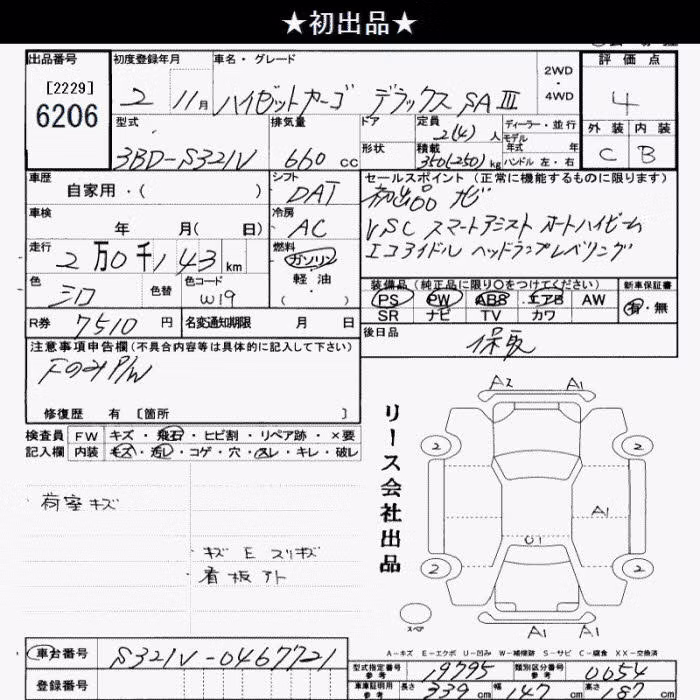 ★初出品★
出品番号
[2229]
6206
初度登録年月
2 11月
車名・グレード
ハイゼットカーゴ デラックス SAⅢ
2WD
4WD
評価点
4
型式
3BD-S321V
排気量
660 cc
ドア
形状
定員
2(4) 人
積載
350(250) kg
ディーラー・並行
モデル
年式 年
ハンドル 左・右
外装 内装
C B
車歴
自家用・( )
シフト
DAT
車検
年 月( 日)
冷房
AC
走行
2万0千143km
燃料
ガソリン
軽油
( )
色
シロ
色替
色コード
W19
R券
7510円
名変通知期限 月 日
セールスポイント (正常に機能するものに限ります)
初出品 ナビ
VSC スマートアシスト オートハイビーム
エコアイドル ヘッドランプレベリング
装備品(純正品に限り○をつけてください)
PS PW ABS エアB AW
SR ナビ TV カワ
新車保証書
有・無
後日品
保、取
注意事項申告欄(不具合内容等は具体的に記入して下さい)
Fのみ P/W
修復歴 有 [箇所 ]
検査員
記入欄
FW キズ・飛石・ヒビ割・リペア跡・×要
内装 キズ・汚レ・コゲ・穴・スレ・キレ・破レ
荷室 キズ
キズ E スリキズ
看板アト
リース会社出品
A2 A1
2 2
A1
U1
2 2
A1 A1
スペア
A-キズ E-エクボ U-凹み W-補修跡 S-サビ C-腐食 XX-交換済
車台番号
S321V-0467721
登録番号
型式指定番号
参考
19795
類別区分番号
参考
0054
車庫証明用
参考
長さ 339cm 幅 147cm 高さ 187cm